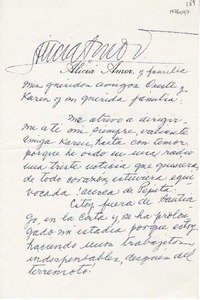 169
Alicia Amor, y familia
Mis queridos amigos Oreste y
Karen y su querida familia.
Me atrevo a dirigir-
me a ti mi siempre, valiente
amiga Karen, hasta con temor
porque he oído en una radio
una triste noticia que quisiera
de todo corazón estuviera equi
vocada! acerca de Pepita.
Estoy fuera de Santia
go, en la costa y se ha prolon
gado mi estadía porque estoy
haciendo unos trabajitos
indispensables, después del
terremoto.